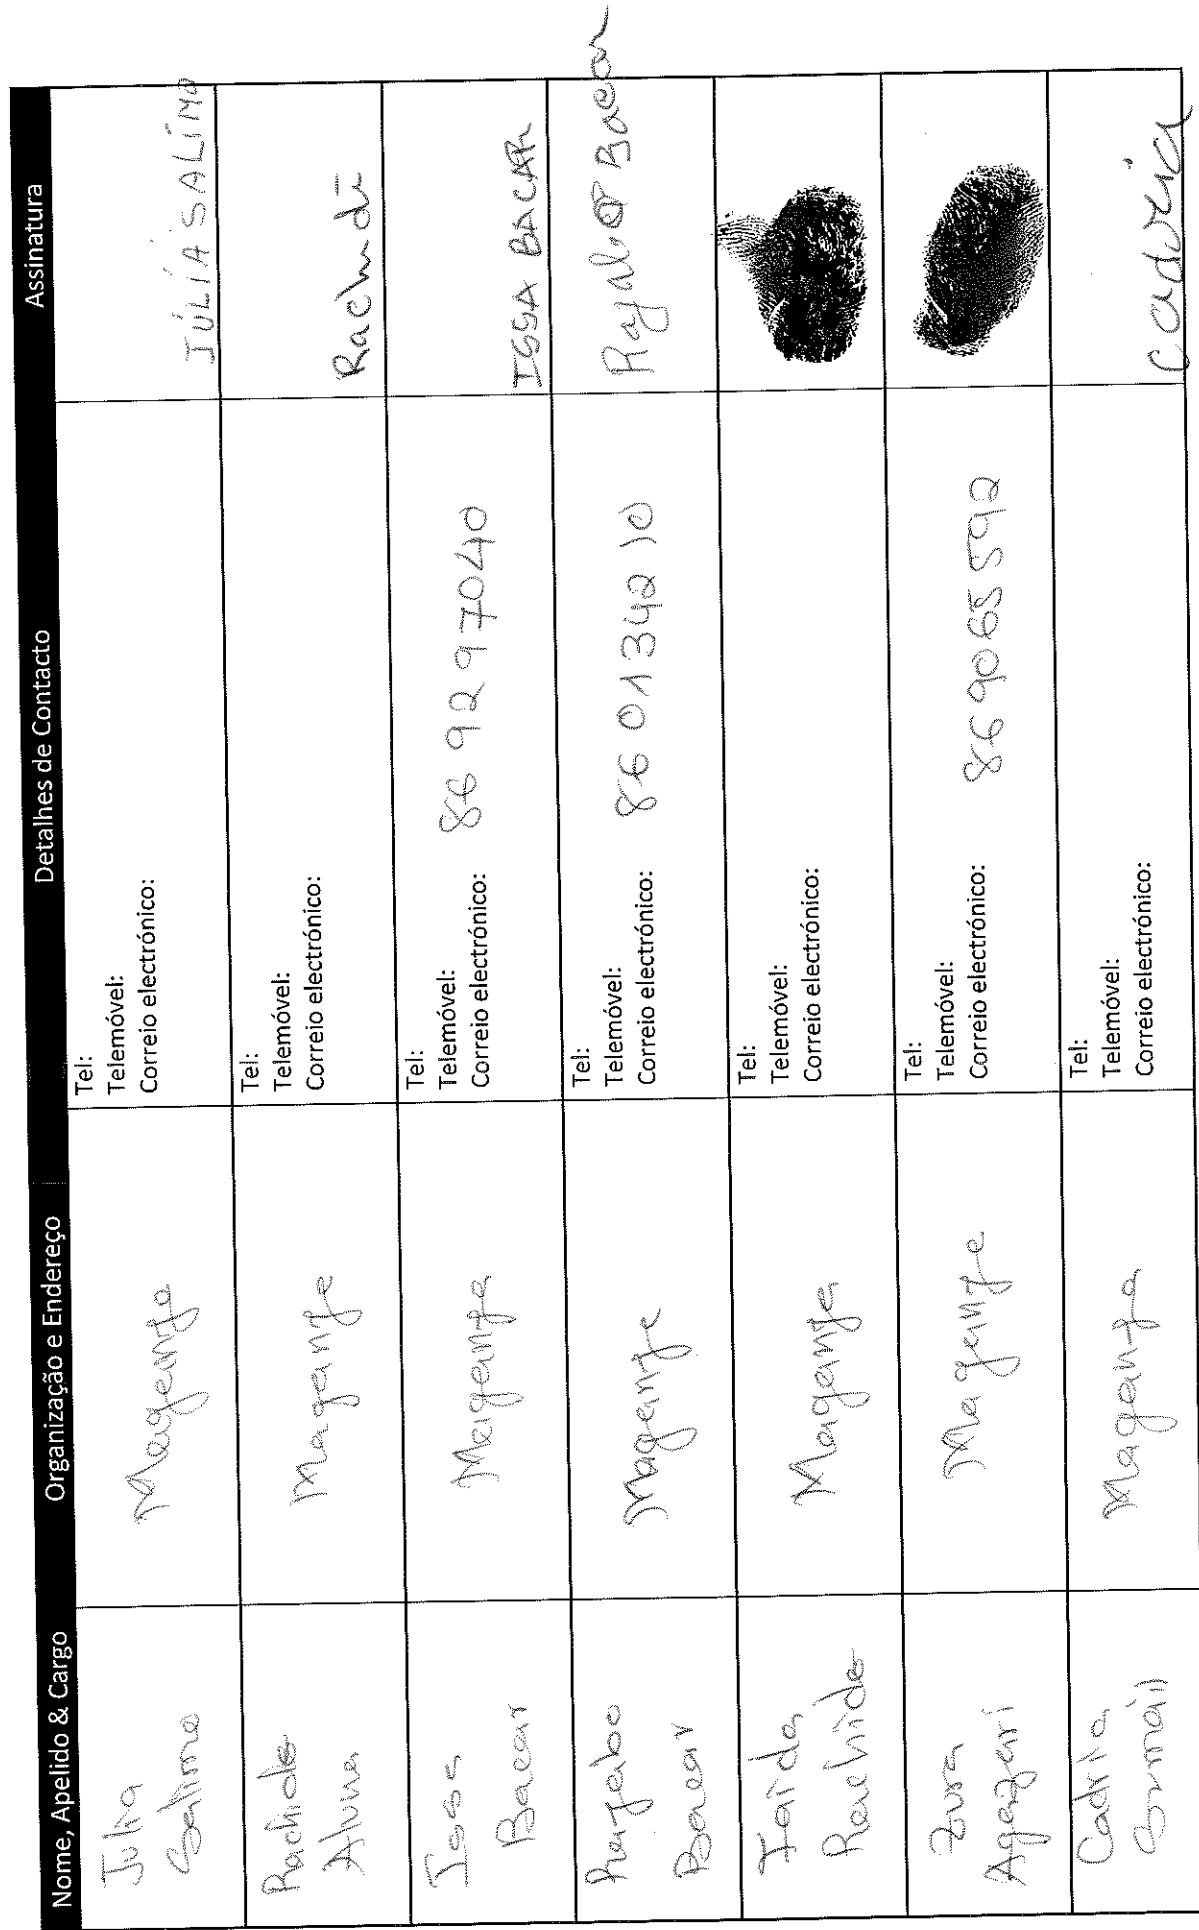 Nome, Apelido & Cargo
Organização e Endereço
Detalhes de Contacto
Assinatura
Julia
Salimo
Maganja
Tel:
Telemóvel:
Correio electrónico:
JÚLIA SALIMO
Rachide
Aluna
Maganja
Tel:
Telemóvel:
Correio electrónico:
Issa
Bacar
Maganja
Tel:
Telemóvel:
86 92 97040
Correio electrónico:
ISSA BACAR
Rajabo
Bacar
Maganja
Tel:
Telemóvel:
86 01342 10
Correio electrónico:
Bacar
Faida
Rachide
Maganja
Tel:
Telemóvel:
Correio electrónico:
Zura
Maganja
Tel:
Telemóvel:
86 9065 592
Correio electrónico:
Cadria
Maganja
Tel:
Telemóvel:
Correio electrónico: